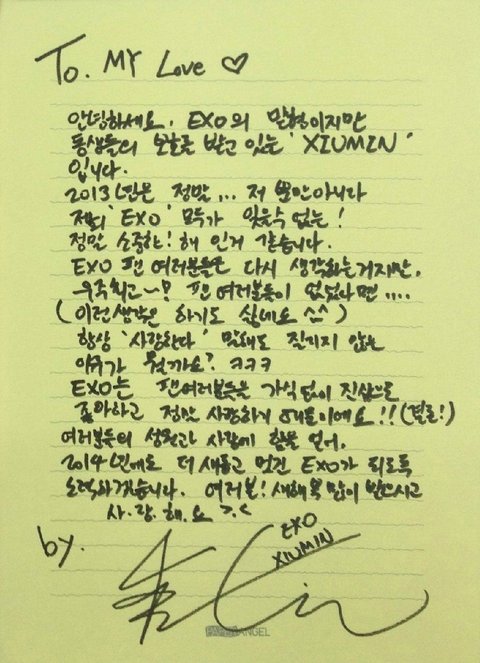 To. MY Love ♡
안녕하세요. EXO의 맏형이지만
동생들의 보호를 받고 있는 'XIUMIN'
입니다.
2013년은 정말... 저 뿐만 아니라
저희 'EXO' 모두가 잊을수 없는!
정말 소중한! 해 인거 같습니다.
EXO 팬 여러분들은 다시 생각하는거지만,
우주최고~! 팬 여러분들이 없었다면....
(이런생각은 하기도 싫네요 ^_^)
항상 '사랑한다' 말해도 질리지 않는
이유가 뭘까요? ㅋㅋㅋ
EXO는 팬여러분들은 가식없이 진심으로
좋아하고 정말 사랑하기 때문이에요!! (결론!)
여러분들의 성원과 사랑에 힘을 얻어,
2014년에도 더 새롭고 멋진 EXO가 되도록
노력하겠습니다. 여러분! 새해 복 많이 받으시고
사.랑.해.요 >.<
by.
EXO
XIUMIN
PAPER ANGEL